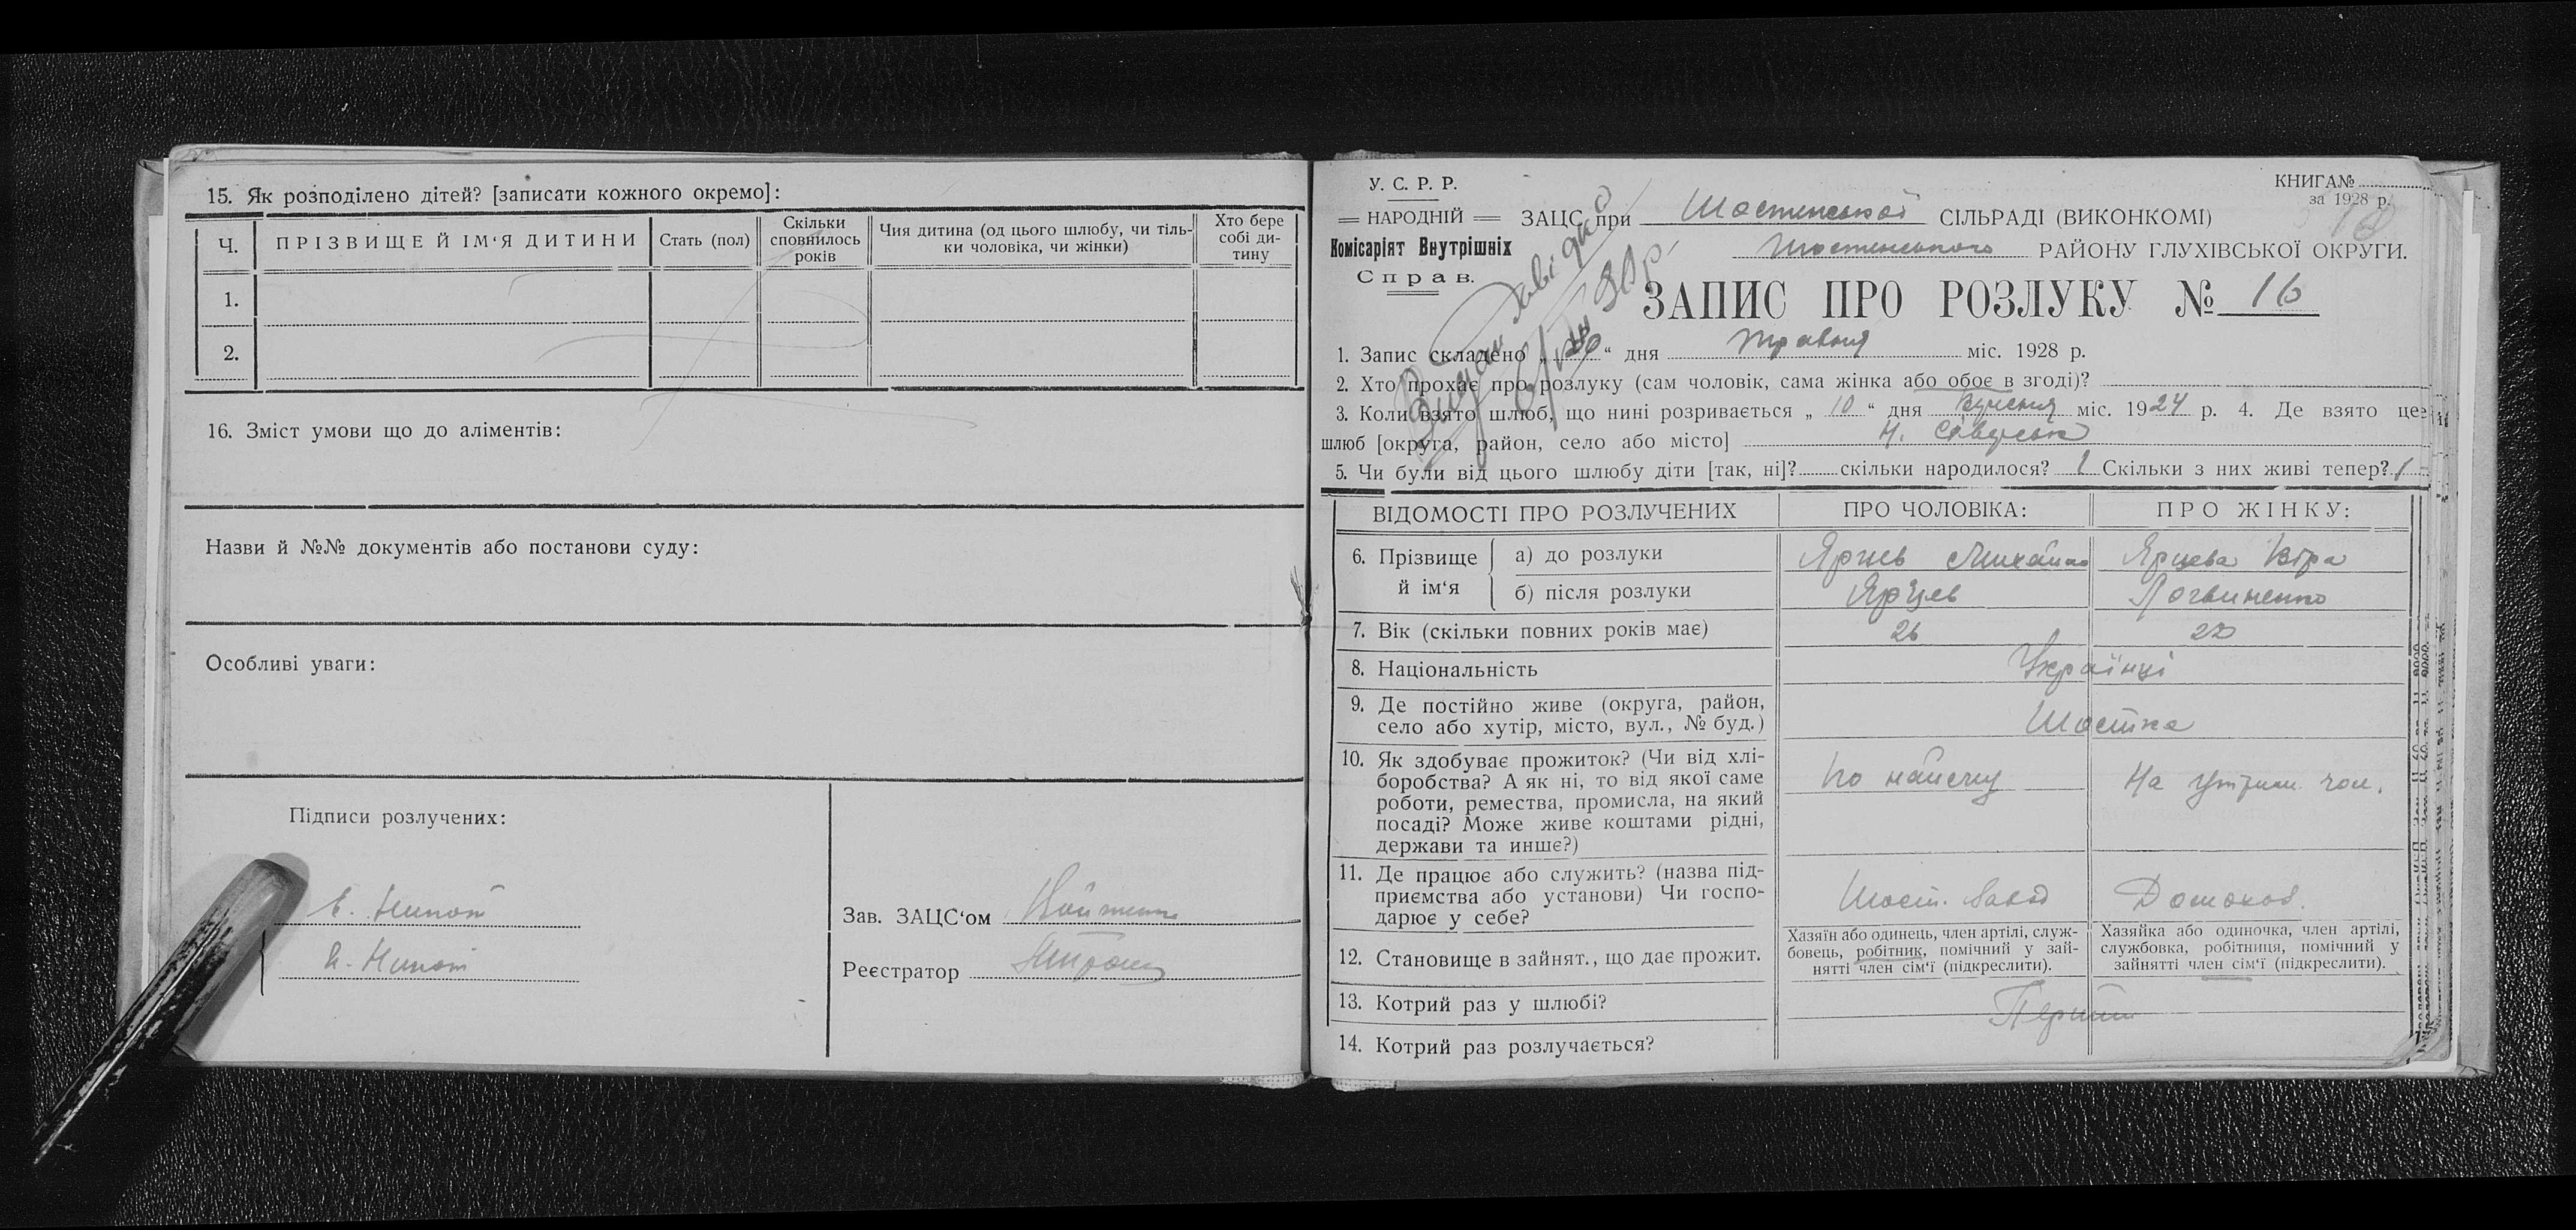 15. Як розподілено дітей? [записати кожного окремо]:
Ч.
ПРІЗВИЩЕ Й ІМ'Я ДИТИНИ
Стать (пол)
Скільки сповнилось років
Чия дитина (од цього шлюбу, чи тіль-
ки чоловіка, чи жінки)
Хто бере собі ди-
тину
1.
2.
16. Зміст умови що до аліментів:
Назви й №№ документів або постанови суду:
Особливі уваги:
Підписи розлучених:
Зав. ЗАЦС'ом
Реєстратор
У. С. Р. Р.
НАРОДНІЙ
Комісаріят Внутрішніх
Справ.
КНИГА №
за 1928 р.
ЗАЦС при Шостенській СІЛЬРАДІ (ВИКОНКОМІ)
Шостенського РАЙОНУ ГЛУХІВСЬКОЇ ОКРУГИ.
ЗАПИС ПРО РОЗЛУКУ № 16
30 р.
1. Запис складено „ “ дня Травня міс. 1928 р.
2. Хто прохає про розлуку (сам чоловік, сама жінка або обоє в згоді)?
3. Коли взято шлюб, що нині розривається „ 10 “ дня міс. 1924 р. 4. Де взято цей
шлюб [округа, район, село або місто]
5. Чи були від цього шлюбу діти [так, ні]? скільки народилося? 1 Скільки з них живі тепер? 1
ВІДОМОСТІ ПРО РОЗЛУЧЕНИХ
ПРО ЧОЛОВІКА:
ПРО ЖІНКУ:
6. Прізвище й ім'я
а) до розлуки
Ярцев Михайло
Ярцева Віра
б) після розлуки
Ярцев
Логвиненко
7. Вік (скільки повних років має)
26
22
8. Національність
Українці
9. Де постійно живе (округа, район,
село або хутір, місто, вул., № буд.)
Шостка
10. Як здобуває прожиток? (Чи від хлі-
боробства? А як ні, то від якої саме
роботи, ремества, промисла, на який
посаді? Може живе коштами рідні,
держави та инше?)
по найому
На утрим. чол.
11. Де працює або служить? (назва під-
приємства або установи) Чи госпо-
дарює у себе?
Шост. Завод
Домохоз.
12. Становище в зайнят., що дає прожит.
Хазяїн або одинець, член артілі, служ-
бовець, робітник, помічний у зай-
нятті член сім'ї (підкреслити).
Хазяйка або одиночка, член артілі,
службовка, робітниця, помічний у
зайнятті член сім'ї (підкреслити).
13. Котрий раз у шлюбі?
14. Котрий раз розлучається?